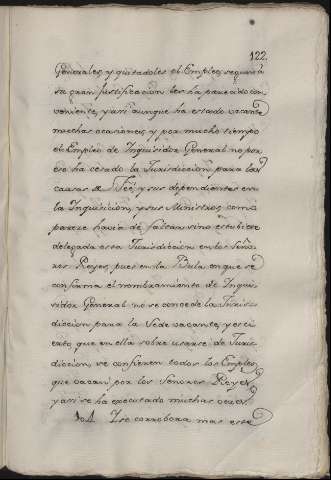 122.
Generales, y quitadoles el Empleo, segun á
su gran justificacion les ha parecido con
veniente, y asi aunque ha estado vacante
muchas ocasiones, y por mucho tiempo
el Empleo de Inquisidor General no por
eso ha cesado la Jurisdiccion para las
causas de Feé, y sus dependientes en
la Inquisicion, y sus Ministros, como
parece havia de faltar, sino estubiere
delegada esta Jurisdiccion en los Seño-
res Reyes, pues en la Bula en que se
confirma el nombramiento de Inqui-
sidor General no se concede la Juris-
diccion para la Sede vacante, y es ci
erto que en ella sobre usarse de Juris-
diccion, se confieren todos los Empleos
que vacan por los Señores Reyes
y asi se ha executado muchas veces.
Y se corrobora mas esta